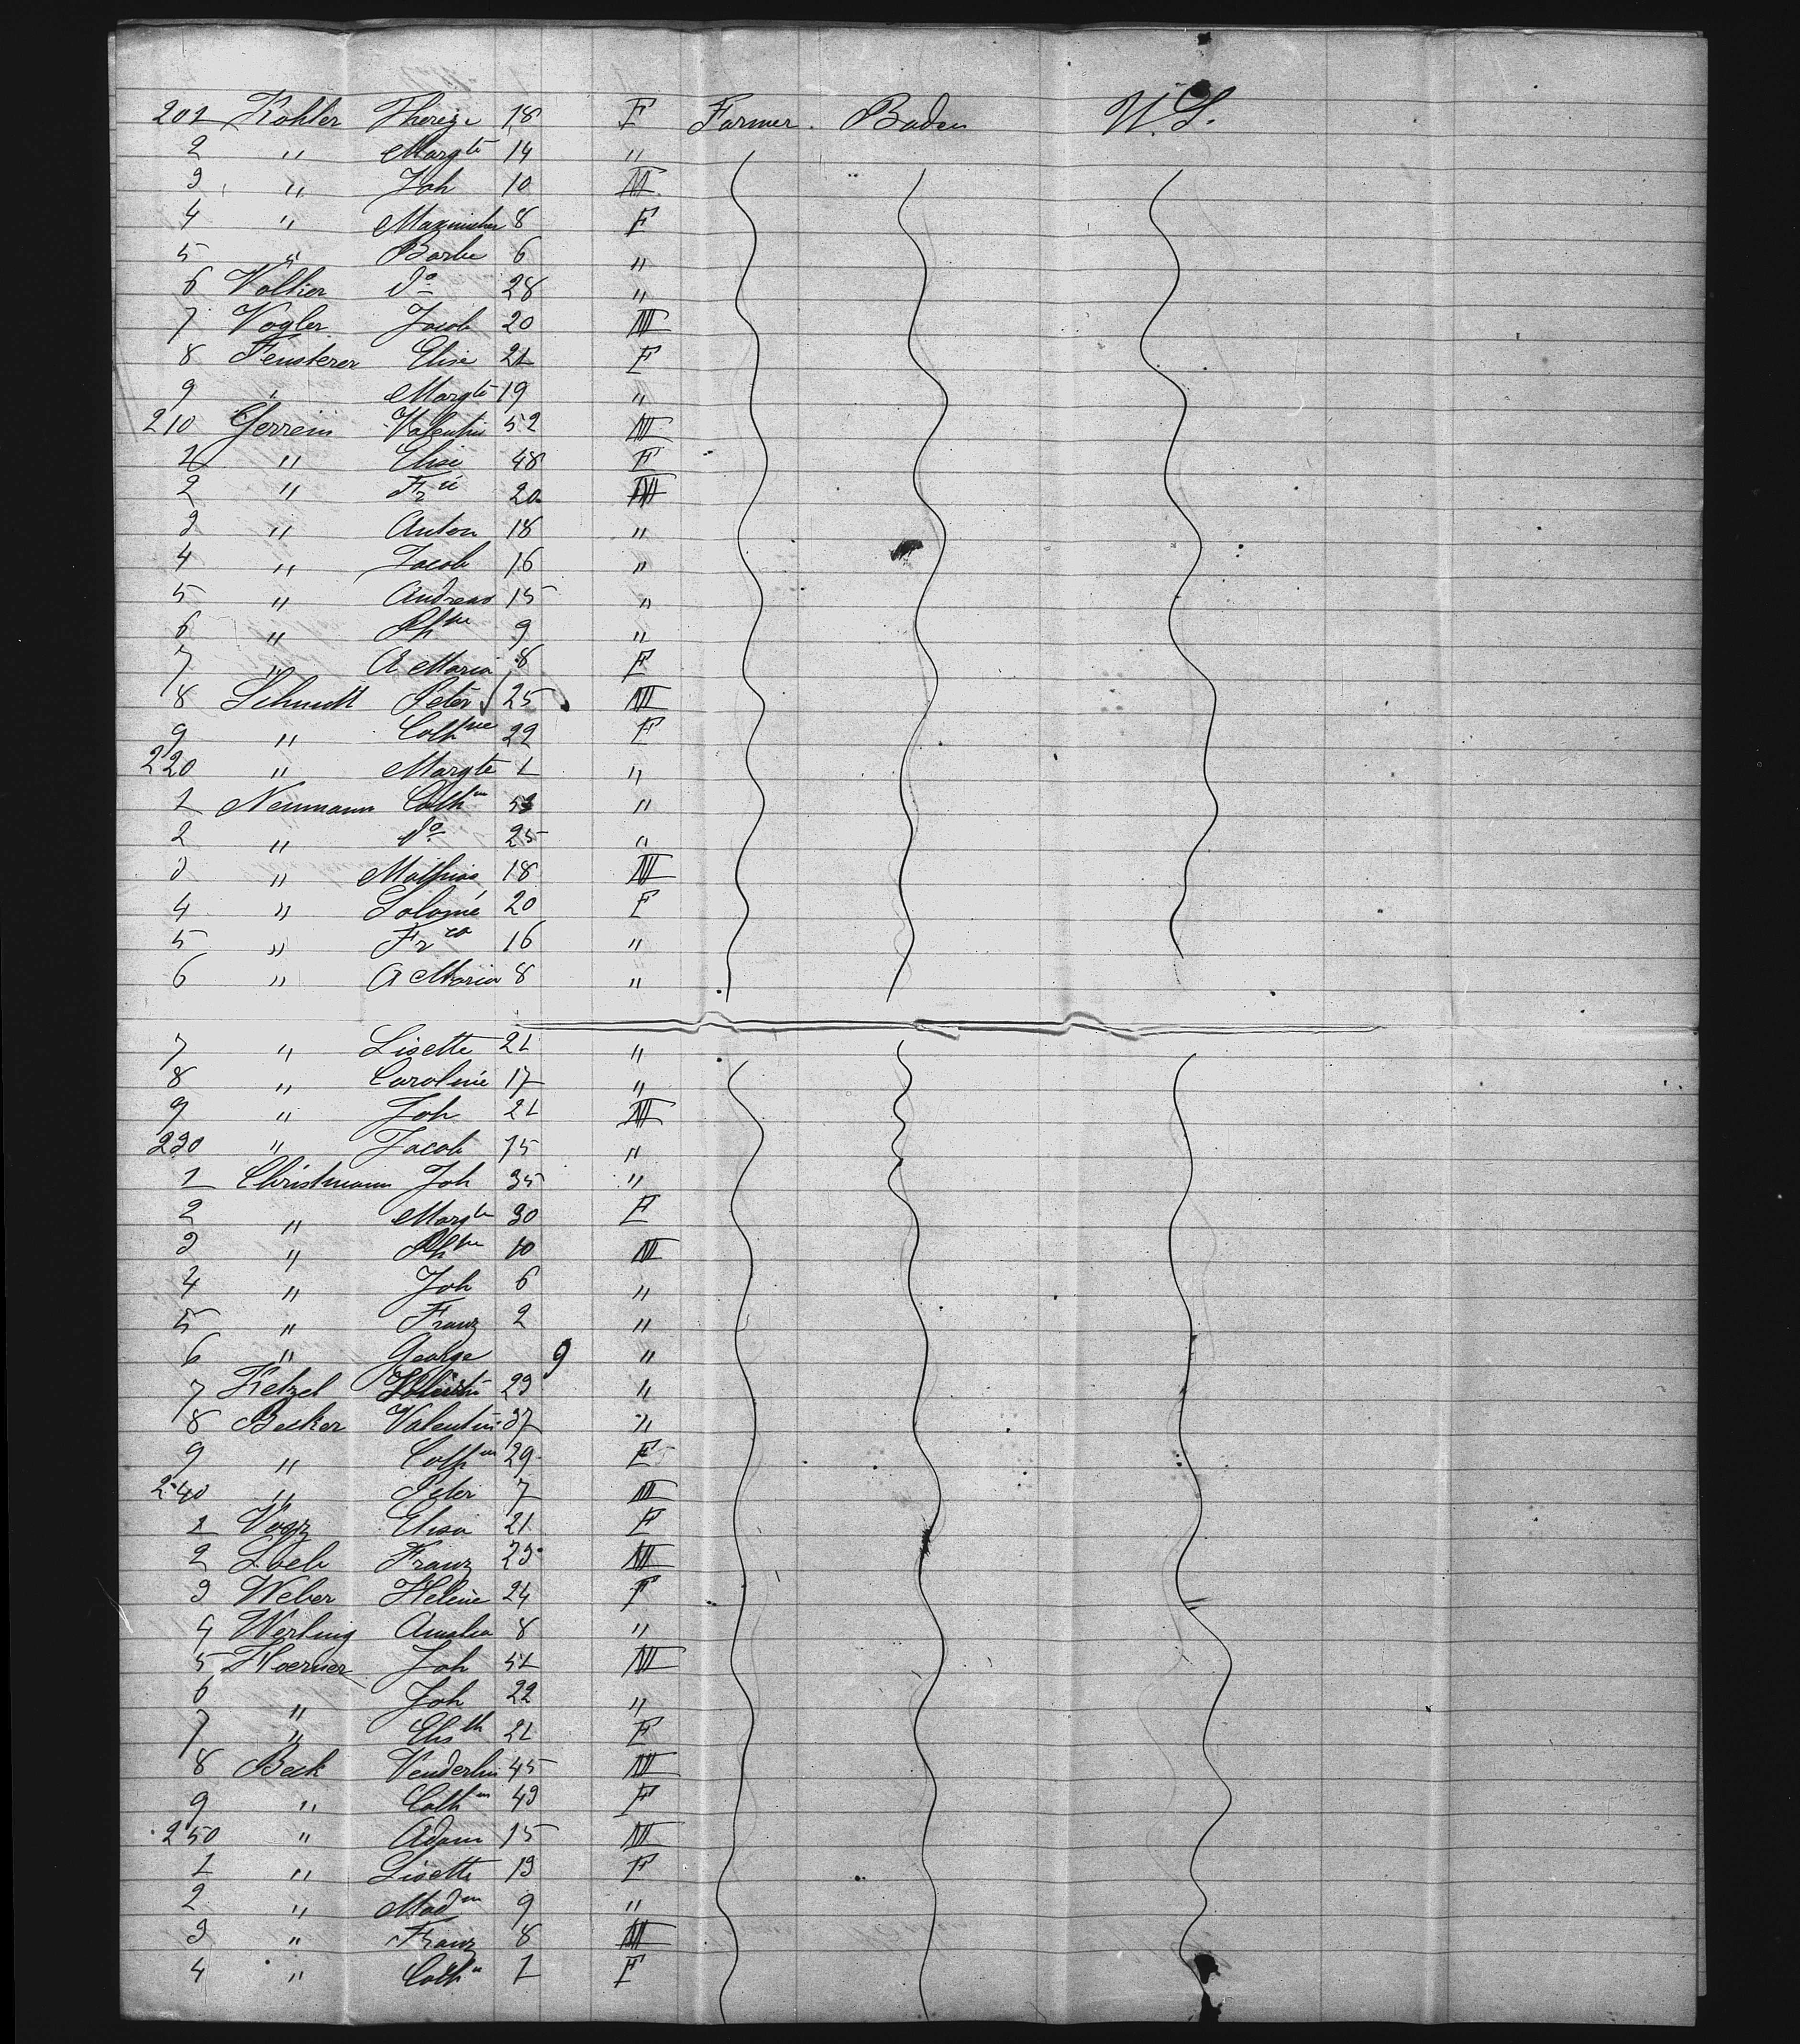 201 Kohler Thereze 18 F Farmer. Baden U. S.
2 " Margte 14 "
3 " Joh 10 M
4 " 8 F
5 " Barbe 6 "
6 Volker do 28 "
7 Vogler Jacob 20 M
8 Fensterer Elise 21 F
9 " Margte 19 "
210 Gerrein Valentin 52 M
1 " Elise 48 F
2 " 20 M
3 " Anton 18 "
4 " Jacob 16 "
5 " Andreas 15 "
6 " 9 "
7 " A Maria 8 F
8 Schmidt Peter 25 M
9 " Cathne 22 F
220 " Margte 1 "
1 Neumann Cathne 53 "
2 " do 25 "
3 " Mathias 18 M
4 " Salomé 20 F
5 " Frca 16 "
6 " A Maria 8 "
7 " Lisette 21 "
8 " Caroline 17 "
9 " Joh 21 M
230 " Jacob 15 "
1 Christmann Joh 35 "
2 " Margte 30 F
3 " 10 M
4 " Joh 6 "
5 " Franz 2 "
6 " George 9 "
7 Ketzel 23 "
8 Becker Valentin 37 "
9 " Cathne 29 F
240 " Peter 7 M
1 Elisa 21 F
2 Loeb Franz 23 M
3 Weber Helene 24 F
4 Werling Amalia 8 "
5 Hoerner Joh 51 M
6 " Joh 22 "
7 " Elisth 21 F
8 Beck Venderlin 45 M
9 " Cathn 43 F
250 " Adam 15 M
1 " Lisette 13 F
2 " Madne 9 "
3 " Franz 8 M
4 " Cathn 1 F